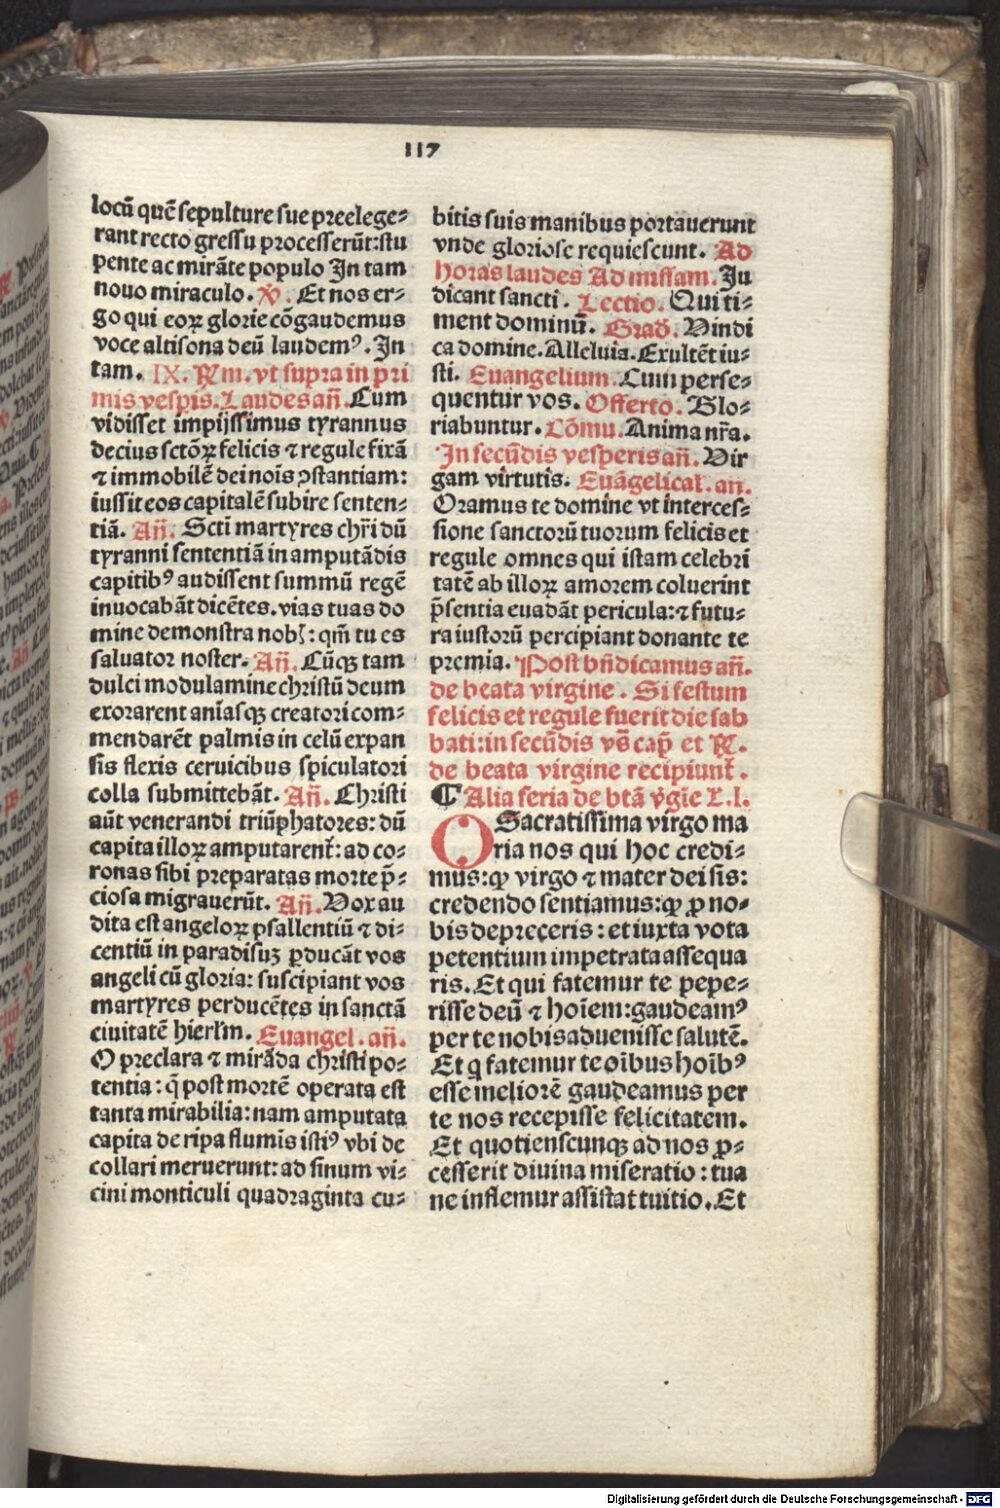 117
locū quē sepulture sue preelege⸗
rant recto gressu processerūt: stu
pente ac mirāte populo In tam
nouo miraculo. ℣. Et nos er⸗
go qui eoꝝ glorie cōgaudemus
voce altisona deū laudemꝰ. In
tam. IX. ℞m. vt supra in pri
mis vesꝑis. Laudes añ. Cum
vidisset impijssimus tyrannus
decius sctōꝝ felicis ⁊ regule fixā
⁊ immobilē dei noīs ꝯstantiam:
iussit eos capitalē subire senten⸗
tiā. Añ. Scti martyres chr̄i dū
tyranni sententiā in amputādis
capitibꝰ audissent summū regē
inuocabāt dicētes. vias tuas do
mine demonstra nobꝭ: qm̄ tu es
saluator noster. Añ. Cūqꝫ tam
dulci modulamine christū deum
exorarent aīasqꝫ creatori com⸗
mendarēt palmis in celū expan
sis flexis ceruicibus spiculatori
colla submittebāt. Añ. Christi
aūt venerandi triūphatores: dū
capita illoꝝ amputarent̄: ad co⸗
ronas sibi preparatas morte p̄⸗
ciosa migrauerūt. Añ. Vox au
dita est angeloꝝ psallentiū ⁊ di⸗
centiū in paradisuꝫ ꝑducāt vos
angeli cū gloria: suscipiant vos
martyres perducētes in sanctā
ciuitatē hierl̄m. Euangel. añ.
O preclara ⁊ mirāda christi po⸗
tentia: q̄ post mortē operata est
tanta mirabilia: nam amputata
capita de ripa flumis istiꝰ vbi de
collari meruerunt: ad sinum vi⸗
cini monticuli quadraginta cu⸗
bitis suis manibus portauerunt
vnde gloriose requiescunt. Ad
horas laudes Ad missam. Ju
dicant sancti. Lectio. Qui ti⸗
ment dominū. Grad̄. Vindi
ca domine. Alleluia. Exultēt iu⸗
sti. Euangelium. Cum perse⸗
quentur vos. Offerto. Glo⸗
riabuntur. Cōmu. Anima nr̄a.
In secūdis vesperis añ. Vir
gam virtutis. Euāgelical. an.
Oramus te domine vt interces⸗
sione sanctorū tuorum felicis et
regule omnes qui istam celebri
tatē ab illoꝝ amorem coluerint
p̄sentia euadāt pericula: ⁊ futu⸗
ra iustorū percipiant donante te
premia. Post bn̄dicamus añ.
de beata virgine. Si festum
felicis et regule fuerit die sab
bati: in secūdis vs̄ cap̄ et ℞.
de beata virgine recipiunt̄.
¶ Alia feria de btā v̓gie L. l.
O Sacratissima virgo ma
ria nos qui hoc credi⸗
mus: ꝙ virgo ⁊ mater dei sis:
credendo sentiamus: ꝙ ꝓ no⸗
bis depreceris: et iuxta vota
petentium impetrata assequa
ris. Et qui fatemur te pepe⸗
risse deū ⁊ hoīem: gaudeamꝰ
per te nobis aduenisse salutē.
Et q fatemur te oībus hoībꝰ
esse meliorē gaudeamus per
te nos recepisse felicitatem.
Et quotienscunqꝫ ad nos ꝓ⸗
cesserit diuina miseratio: tua
ne inflemur assistat tuitio. Et
Digitalisierung gefördert durch die Deutsche Forschungsgemeinschaft - DFG